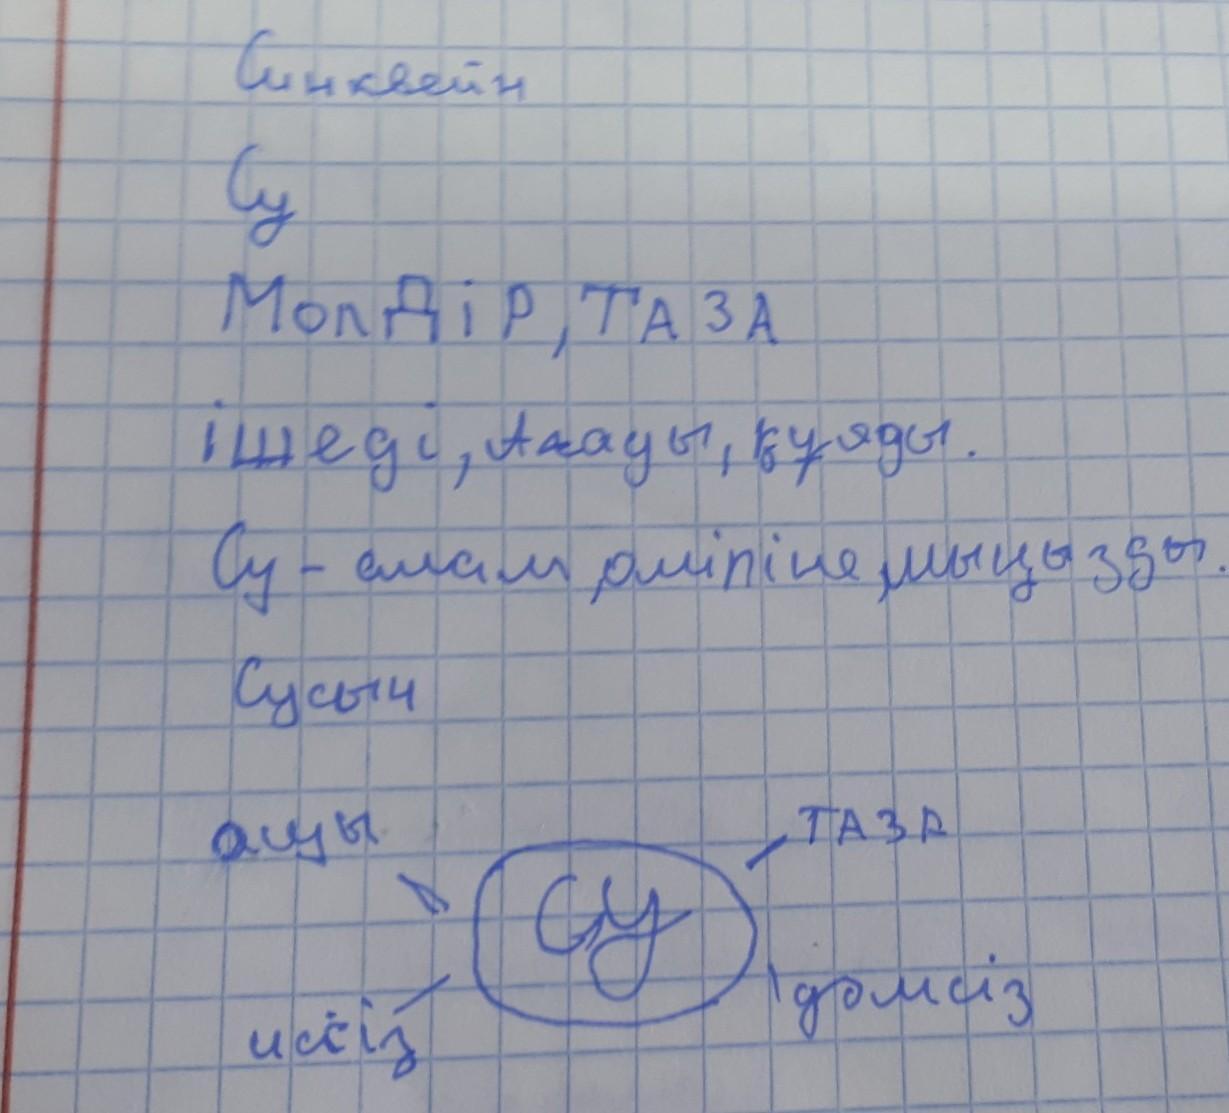 Синквейн
Су
МолДіР, ТАЗА
ішеді, Ағады, құяды.
Су - адам өміріне маңызды.
Сусын
ащы
ТАЗА
Су
дәмсіз
иссіз